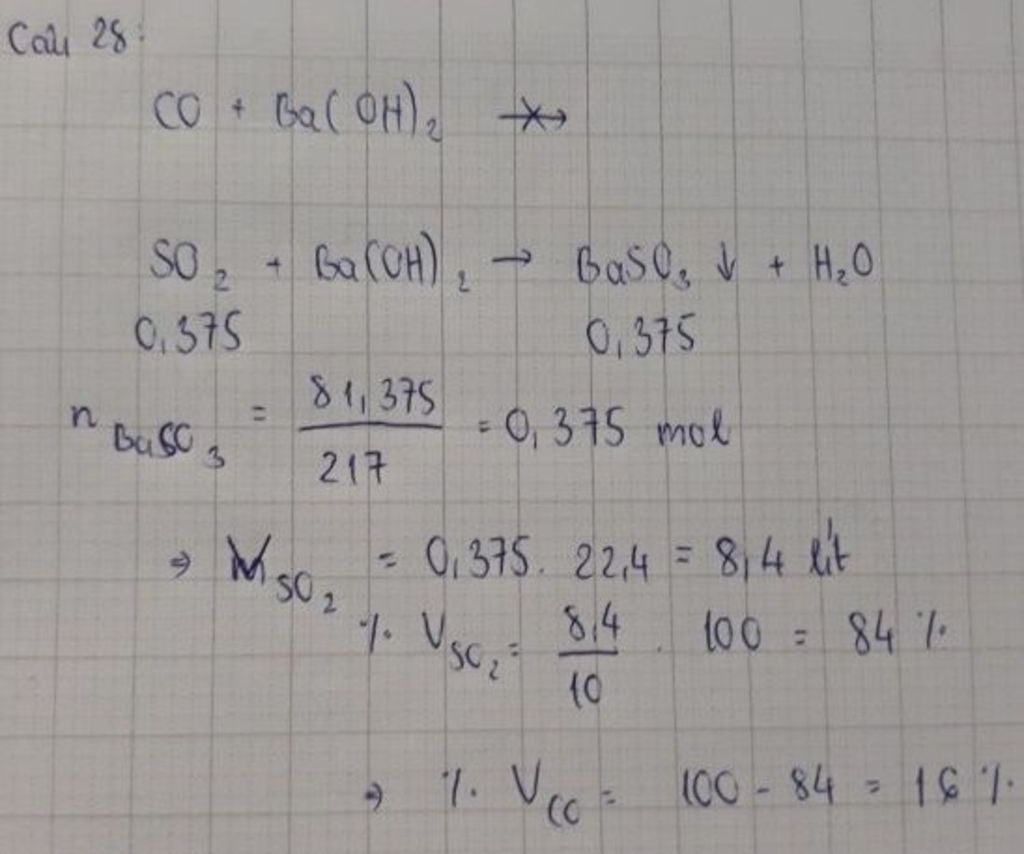 Câu 28:
CO + Ba(OH)₂ ↛
SO₂ + Ba(OH)₂ → BaSO₃ ↓ + H₂O
0,375 0,375
n BaSO₃ = 81,375 / 217 = 0,375 mol
⇒ V SO₂ = 0,375 . 22,4 = 8,4 lít
% V SO₂ = 8,4 / 10 . 100 = 84 %
⇒ % V CO = 100 - 84 = 16 %